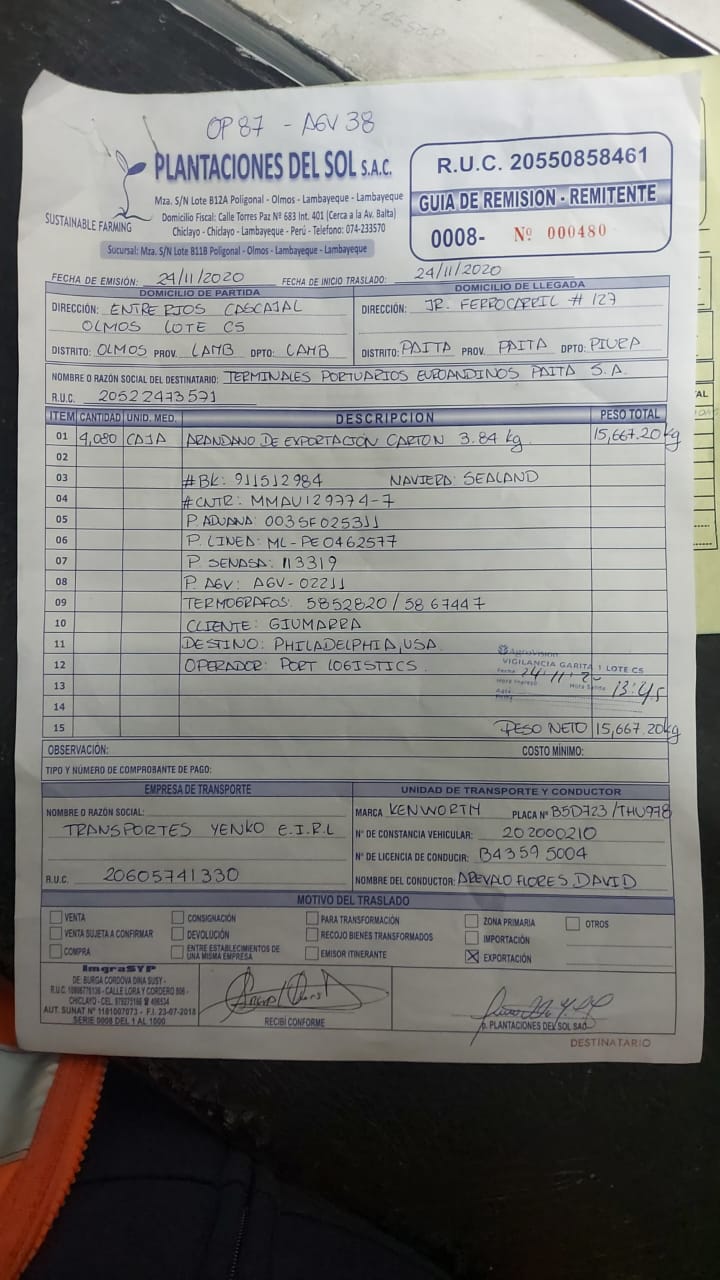 OP 87 - AGV 38
PLANTACIONES DEL SOL S.A.C.
SUSTAINABLE FARMING
Mza. S/N Lote B12A Poligonal - Olmos - Lambayeque - Lambayeque
Domicilio Fiscal: Calle Torres Paz Nº 683 Int. 401 (Cerca a la Av. Balta)
Chiclayo - Chiclayo - Lambayeque - Perú - Telefono: 074-233570
Sucursal: Mza. S/N Lote B11B Poligonal - Olmos - Lambayeque - Lambayeque
R.U.C. 20550858461
GUIA DE REMISION - REMITENTE
0008- Nº 000480
FECHA DE EMISIÓN: 24/11/2020 FECHA DE INICIO TRASLADO: 24/11/2020
DOMICILIO DE PARTIDA
DIRECCIÓN: ENTRE RIOS CASCAJAL
OLMOS LOTE C5
DISTRITO: OLMOS PROV. LAMB DPTO: LAMB
DOMICILIO DE LLEGADA
DIRECCIÓN: JR. FERROCARRIL # 127
DISTRITO: PAITA PROV. PAITA DPTO: PIURA
NOMBRE O RAZÓN SOCIAL DEL DESTINATARIO: TERMINALES PORTUARIOS EUROANDINOS PAITA S.A.
R.U.C. 20522473571
ITEM CANTIDAD UNID. MED. DESCRIPCION PESO TOTAL
01 4,080 CAJA ARANDANO DE EXPORTACION CARTON 3.84 kg. 15,667.20kg
02
03 #BK: 911512984 NAVIERA: SEALAND
04 #CNTR: MMAU129774-7
05 P. ADUANA: 0035F025311
06 P. LINEA: ML-PE0462577
07 P. SENASA: 113319
08 P. AGV: AGV-02211
09 TERMOGRAFOS: 5852820 / 5867447
10 CLIENTE: GIUMARRA
11 DESTINO: PHILADELPHIA, USA
12 OPERADOR: PORT LOGISTICS.
13
14
15 PESO NETO 15,667.20kg
AgroVision
VIGILANCIA GARITA 1 LOTE C5
Fecha 24/11/2
Hora Ingreso Hora Salida 13:45
OBSERVACIÓN: COSTO MÍNIMO:
TIPO Y NÚMERO DE COMPROBANTE DE PAGO:
EMPRESA DE TRANSPORTE
NOMBRE O RAZÓN SOCIAL:
TRANSPORTES YENKO E.I.R.L
R.U.C. 20605741330
UNIDAD DE TRANSPORTE Y CONDUCTOR
MARCA KENWORTH PLACA Nº B5D723/THU978
Nº DE CONSTANCIA VEHICULAR: 202000210
Nº DE LICENCIA DE CONDUCIR: B43595004
NOMBRE DEL CONDUCTOR: AREVALO FLORES DAVID
MOTIVO DEL TRASLADO
VENTA CONSIGNACIÓN PARA TRANSFORMACIÓN ZONA PRIMARIA OTROS
VENTA SUJETA A CONFIRMAR DEVOLUCIÓN RECOJO BIENES TRANSFORMADOS IMPORTACIÓN
COMPRA ENTRE ESTABLECIMIENTOS DE UNA MISMA EMPRESA EMISOR ITINERANTE X EXPORTACIÓN
ImgraSYP
DE: BURGA CORDOVA DINA SUSY -
CALLE LORA Y CORDERO
CHICLAYO - CEL.
AUT. SUNAT Nº 1181007073 - F.I. 23-07-2018
SERIE 0008 DEL 1 AL 1000
RECIBÍ CONFORME
p. PLANTACIONES DEL SOL SAC
DESTINATARIO